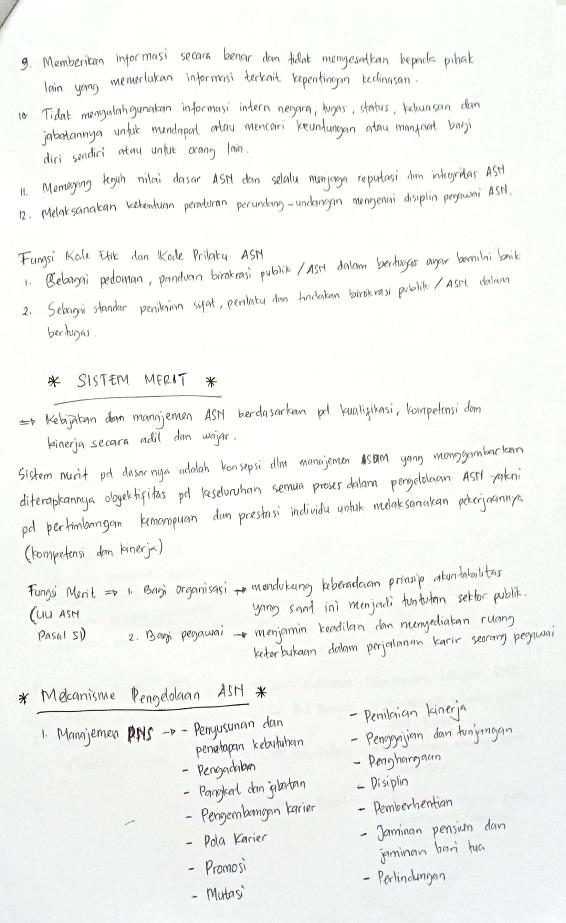 9. Memberikan informasi secara benar dan tidak menyesatkan kepada pihak
lain yang memerlukan informasi terkait kepentingan kedinasan.
10. Tidak menyalahgunakan informasi intern negara, tugas, status, kekuasaan dan
jabatannya untuk mendapat atau mencari keuntungan atau manfaat bagi
diri sendiri atau untuk orang lain.
11. Memegang teguh nilai dasar ASN dan selalu menjaga reputasi dan integritas ASN
12. Melaksanakan ketentuan peraturan perundang-undangan mengenai disiplin pegawai ASN.
Fungsi Kode Etik dan Kode Prilaku ASN
1. Sebagai pedoman, panduan birokrasi publik / ASN dalam bertugas agar bernilai baik
2. Sebagai standar penilaian sifat, perilaku dan tindakan birokrasi publik / ASN dalam
bertugas.
* SISTEM MERIT *
=> Kebijakan dan manajemen ASN berdasarkan pd kualifikasi, kompetensi dan
kinerja secara adil dan wajar.
Sistem merit pd dasarnya adalah konsepsi dlm manajemen SDM yang menggambarkan
diterapkannya obyektifitas pd keseluruhan semua proses dalam pengelolaan ASN yakni
pd pertimbangan kemampuan dan prestasi individu untuk melaksanakan pekerjaannya
(kompetensi dan kinerja)
Fungsi Merit => 1. Bagi organisasi → mendukung keberadaan prinsip akuntabilitas
(UU ASN yang saat ini menjadi tuntutan sektor publik.
Pasal 51) 2. Bagi pegawai → menjamin keadilan dan menyediakan ruang
keterbukaan dalam perjalanan karir seorang pegawai
* Mekanisme Pengelolaan ASN *
1. Manajemen PNS → - Penyusunan dan
penetapan kebutuhan
- Pengadaan
- Pangkat dan jabatan
- Pengembangan karier
- Pola Karier
- Promosi
- Mutasi
- Penilaian kinerja
- Penggajian dan tunjangan
- Penghargaan
- Disiplin
- Pemberhentian
- Jaminan pensiun dan
jaminan hari tua
- Perlindungan